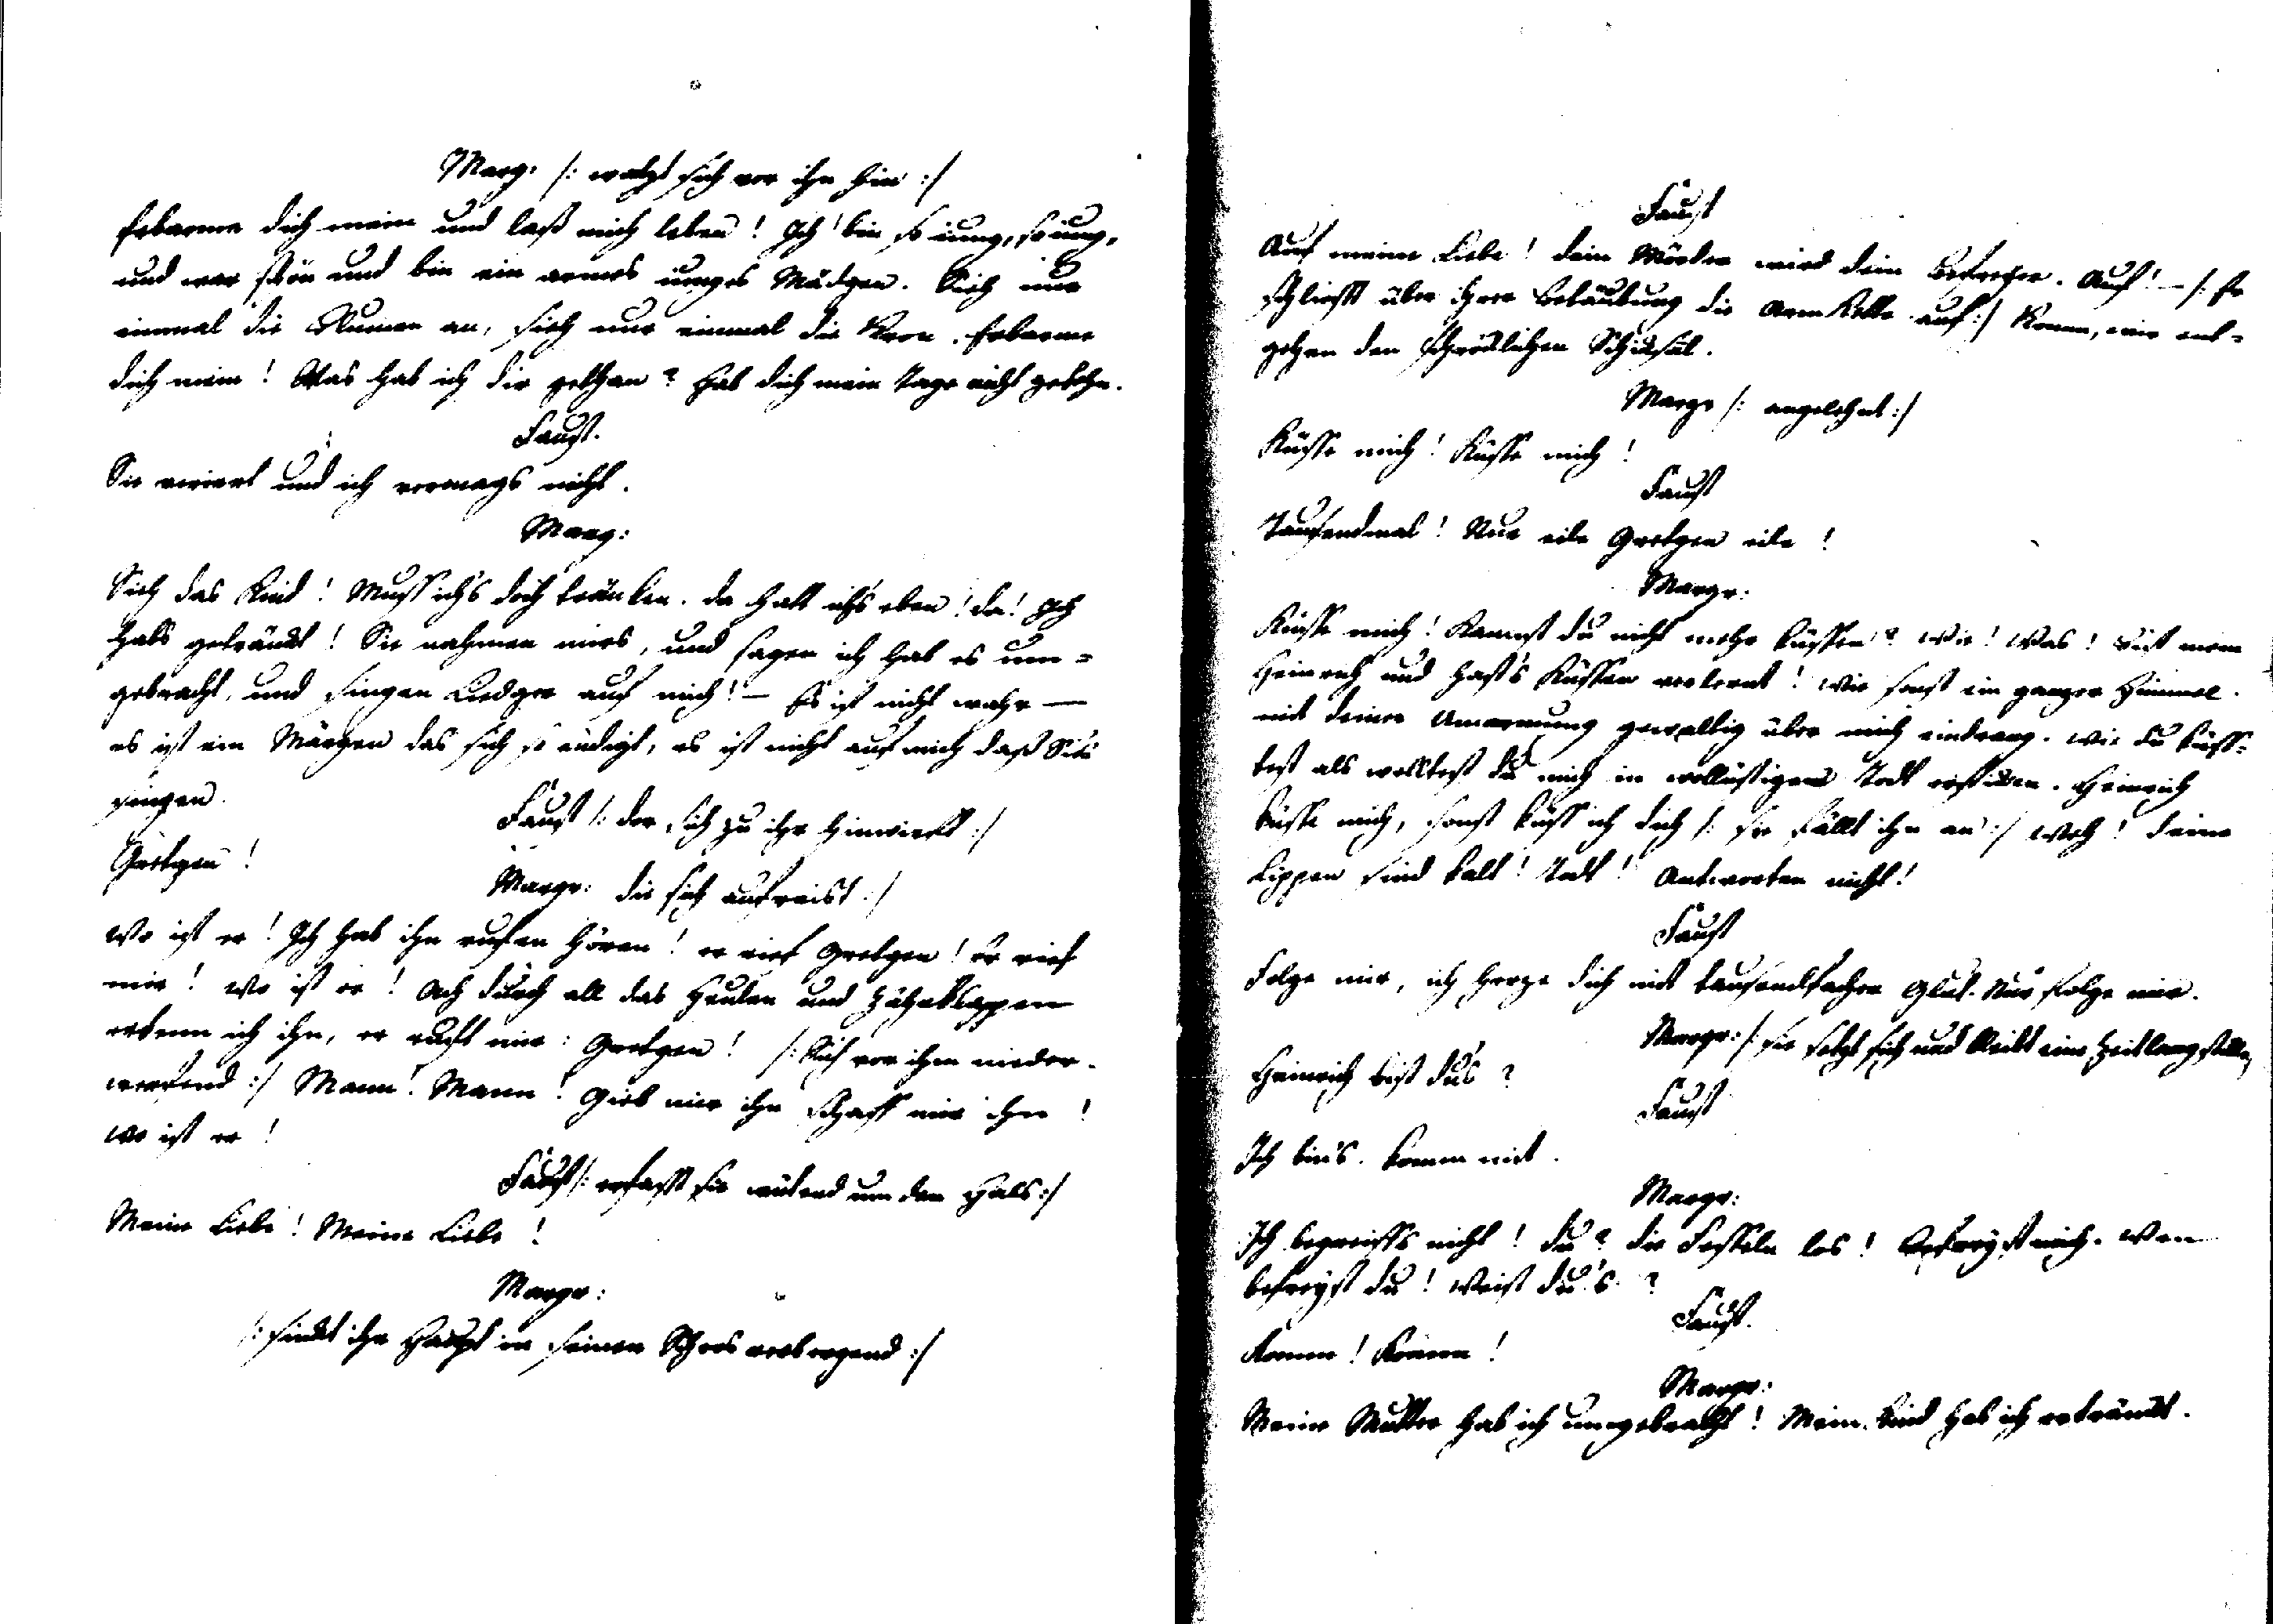 Marg. /: wälzt sich vor ihn hin :/
Erbarme dich mein und laß mich leben! Ich bin so iung, so iung,
und war schön und bin ein armes iunges Mädgen. Sieh nur
einmal die Blumen an, sieh nur einmal die Kron. Erbarme
dich mein! Was hab ich dir gethan? Hab dich mein Tage nicht gesehn.
Faust.
Sie verirrt und ich vermags nicht.
Marg:
Sieh das Kind! Muss ich's doch tränken. Da hatt ich's eben! Da! Ich
habs getränckt! Sie nahmen mirs, und sagen ich hab es um=
gebracht, und singen Liedger auf mich! — Es ist nicht wahr —
es ist ein Märgen das sich so endigt, es ist nicht auf mich daß Sie's
singen.
Faust /: der sich zu ihr hinwirft :/
Gretgen!
Margr: die sich aufreist :/
Wo ist er! Ich hab ihn rufen hören! er rief Gretgen! Er rief
mir! Wo ist er! Ach durch all das Heulen und Zähnklappen
erkenn ich ihn, er ruft mir: Gretgen! /: Sich vor ihm nieder-
werfend :/ Mann! Mann! Gieb mir ihn schaff mir ihn!
wo ist er!
Faust /: erfasst sie wütend um den Hals :/
Meine Liebe! Meine Liebe!
Margr:
/: sinckt ihr Haupt in seinen Schoos verbergend :/
Faust
Auf meine Liebe! Dein Mörder wird dein Befreyer. Auf! — /: Er
schliesst über ihrer Betäubung die Arm Kette auf :/ Komm, wir ent=
gehen dem schröcklichen Schicksal.
Margr /: angelehnt :/
Küsse mich! Küsse mich!
Faust
Tausendmal! Nur eile Gretgen eile!
Margr:
Küsse mich! Kannst du nicht mehr küssen? Wie! Was! Bist mein
Heinrich und hast's Küssen verlernt! Wie sonst ein ganzer Himmel
mit deiner Umarmung gewaltig über mich eindrang. Wie du küss=
test als wolltest du mich in wollüstigem Todt ersticken. Heinrich
küsse mich, sonst küss ich dich /: sie fällt ihn an :/ Weh! Deine
Lippen sind kalt! Todt! Antworten nicht!
Faust
Folge mir, ich herze dich mit tausendfacher Glut. Nur folge mir.
Margr: /: sie setzt sich und bleibt eine Zeitlang stille
Heinrich bist du's?
Faust
Ich bin's. komm mit.
Margr:
Ich begreiffs nicht! Du? Die Fesseln los! Befreyst mich. Wen
befreyst du! Weist du's?
Faust.
Komm! Komm!
Margr:
Meine Mutter hab ich umgebracht! Mein Kind hab ich ertränckt.